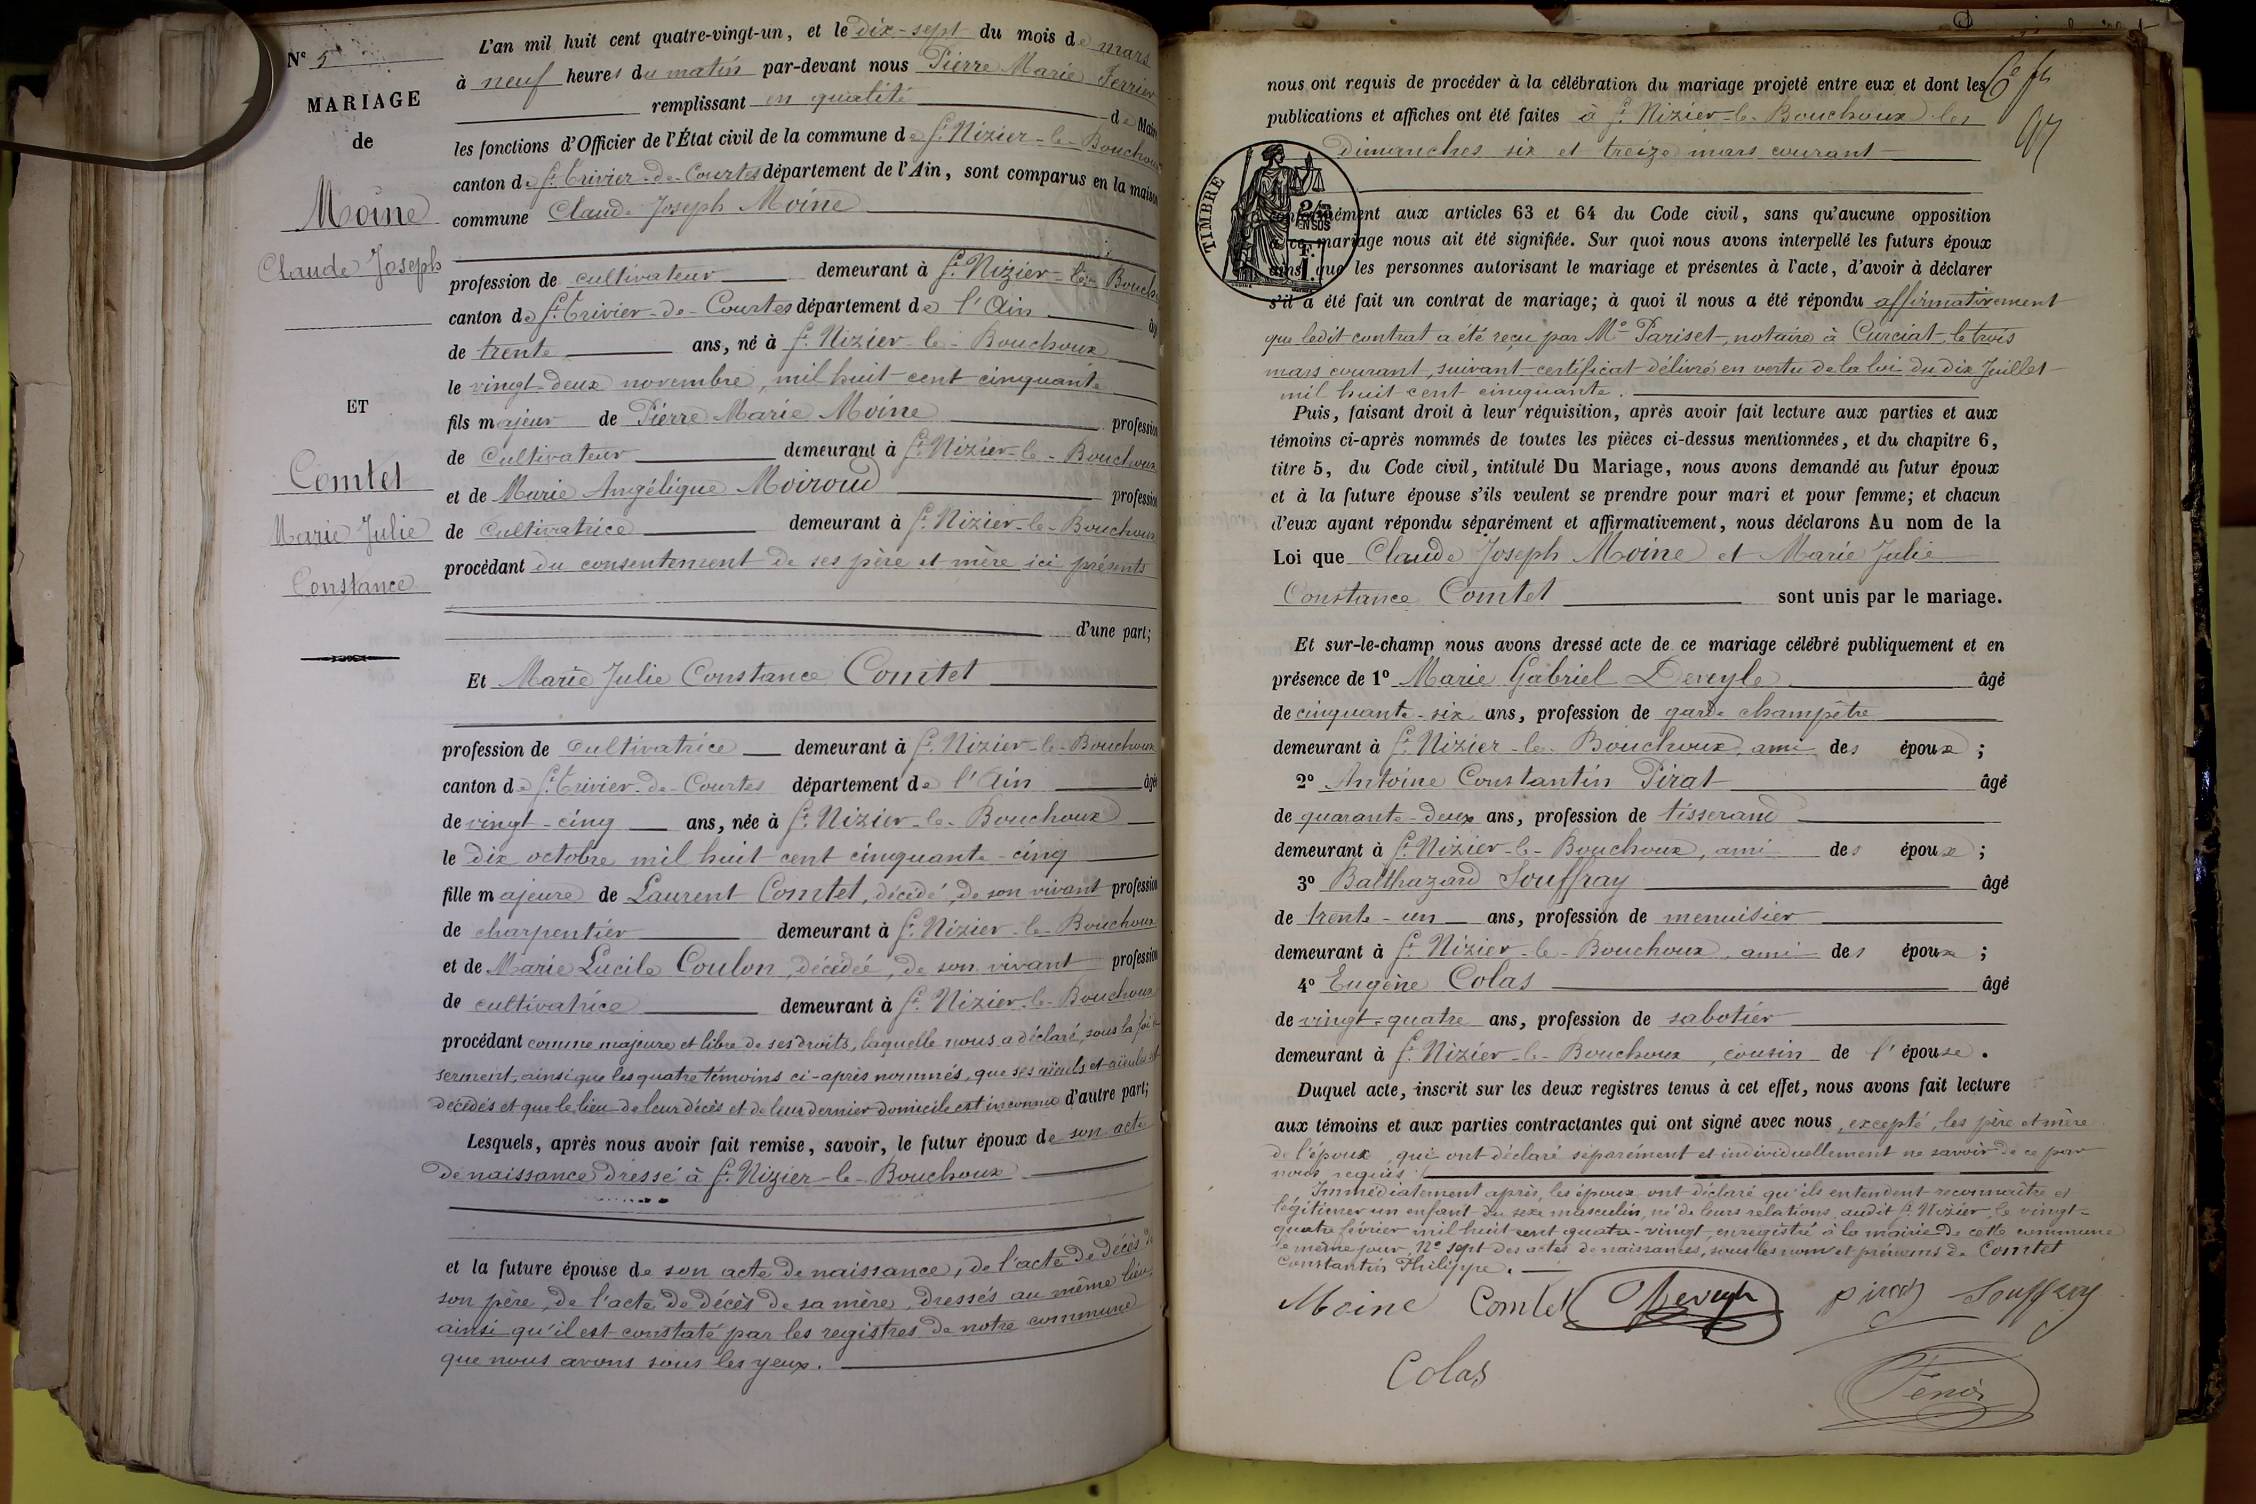 N° 5
MARIAGE
de
Moine
Claude Joseph
ET
Comtet
Marie Julie
Constance
L'an mil huit cent quatre-vingt-un, et le dix-sept du mois de mars
à neuf heures du matin par-devant nous Pierre Marie Ferrier
remplissant en qualité de Maire
les fonctions d'Officier de l'État civil de la commune de St Nizier-le-Bouchoux
canton de St Trivier-de-Courtes département de l'Ain, sont comparus en la maison
commune Claude Joseph Moine
profession de cultivateur demeurant à St Nizier-le-Bouch
canton de St Trivier-de-Courtes département de l'Ain âg
de trente ans, né à St Nizier-le-Bouchoux
le vingt-deux novembre, mil huit cent cinquante
fils majeur de Pierre Marie Moine profession
de cultivateur demeurant à St Nizier-le-Bouchoux
et de Marie Angélique Moiroud profession
de cultivatrice demeurant à St Nizier-le-Bouchoux
procédant du consentement de ses père et mère ici présents
d'une part;
Et Marie Julie Constance Comtet
profession de cultivatrice demeurant à St Nizier-le-Bouchoux
canton de St Trivier-de-Courtes département de l'Ain âgée
de vingt-cinq ans, née à St Nizier-le-Bouchoux
le dix octobre mil huit cent cinquante-cinq
fille majeure de Laurent Comtet, décédé, de son vivant profession
de charpentier demeurant à St Nizier-le-Bouchoux
et de Marie Lucile Coulon, décédée, de son vivant profession
de cultivatrice demeurant à St Nizier-le-Bouchoux
procédant comme majeure et libre de ses droits, laquelle nous a déclaré, sous la foi
serment, ainsi que les quatre témoins ci-après nommés, que ses aïeuls et aïeules
décédés et que le lieu de leur décès et de leur dernier domicile est inconnu d'autre part;
Lesquels, après nous avoir fait remise, savoir, le futur époux de son acte
de naissance dressé à St Nizier-le-Bouchoux
et la future épouse de son acte de naissance, de l'acte de décès de
son père, de l'acte de décès de sa mère, dressés au même lieu,
ainsi qu'il est constaté par les registres de notre commune
que nous avons sous les yeux.
nous ont requis de procéder à la célébration du mariage projeté entre eux et dont les
publications et affiches ont été faites à St Nizier-le-Bouchoux les
dimanches six et treize mars courant
TIMBRE
conformément aux articles 63 et 64 du Code civil, sans qu'aucune opposition
à ce mariage nous ait été signifiée. Sur quoi nous avons interpellé les futurs époux
ainsi que les personnes autorisant le mariage et présentes à l'acte, d'avoir à déclarer
s'il a été fait un contrat de mariage; à quoi il nous a été répondu affirmativement
que ledit contrat a été reçu par Me Pariset, notaire à Curciat, le trois
mars courant, suivant certificat délivré en vertu de la loi du dix Juillet
mil huit cent cinquante.
Puis, faisant droit à leur réquisition, après avoir fait lecture aux parties et aux
témoins ci-après nommés de toutes les pièces ci-dessus mentionnées, et du chapitre 6,
titre 5, du Code civil, intitulé Du Mariage, nous avons demandé au futur époux
et à la future épouse s'ils veulent se prendre pour mari et pour femme; et chacun
d'eux ayant répondu séparément et affirmativement, nous déclarons Au nom de la
Loi que Claude Joseph Moine et Marie Julie
Constance Comtet sont unis par le mariage.
Et sur-le-champ nous avons dressé acte de ce mariage célébré publiquement et en
présence de 1° Marie Gabriel Deveyle âgé
de cinquante-six ans, profession de garde champêtre
demeurant à St Nizier-le-Bouchoux, ami des époux;
2° Antoine Constantin Pirat âgé
de quarante-deux ans, profession de tisserand
demeurant à St Nizier-le-Bouchoux, ami des époux;
3° Balthazard Souffray âgé
de trente-un ans, profession de menuisier
demeurant à St Nizier-le-Bouchoux, ami des époux;
4° Eugène Colas âgé
de vingt-quatre ans, profession de sabotier
demeurant à St Nizier-le-Bouchoux, cousin de l'épouse.
Duquel acte, inscrit sur les deux registres tenus à cet effet, nous avons fait lecture
aux témoins et aux parties contractantes qui ont signé avec nous, excepté, les père et mère
de l'époux, qui ont déclaré séparément et individuellement ne savoir de ce par
nous requis.
Immédiatement après, les époux ont déclaré qu'ils entendent reconnaître et
légitimer un enfant du sexe masculin, né de leurs relations, audit St Nizier, le vingt-
quatre février mil huit cent quatre-vingt, enregistré à la mairie de cette commune
le même jour, N° sept des actes de naissances, sous les nom et prénoms de Comtet
Constantin Philippe.
Moine Comtet Deveyle Pirat Souffray
Colas